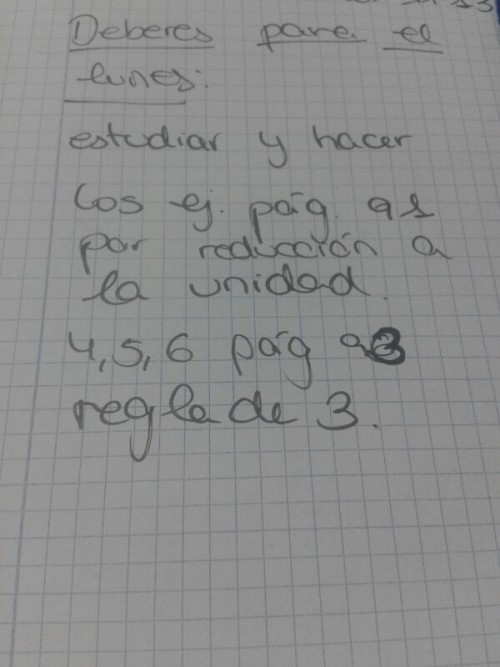 Deberes para el
lunes:
estudiar y hacer
los ej. pág. 91
por reducción a
la unidad.
4, 5, 6 pág 93
regla de 3.